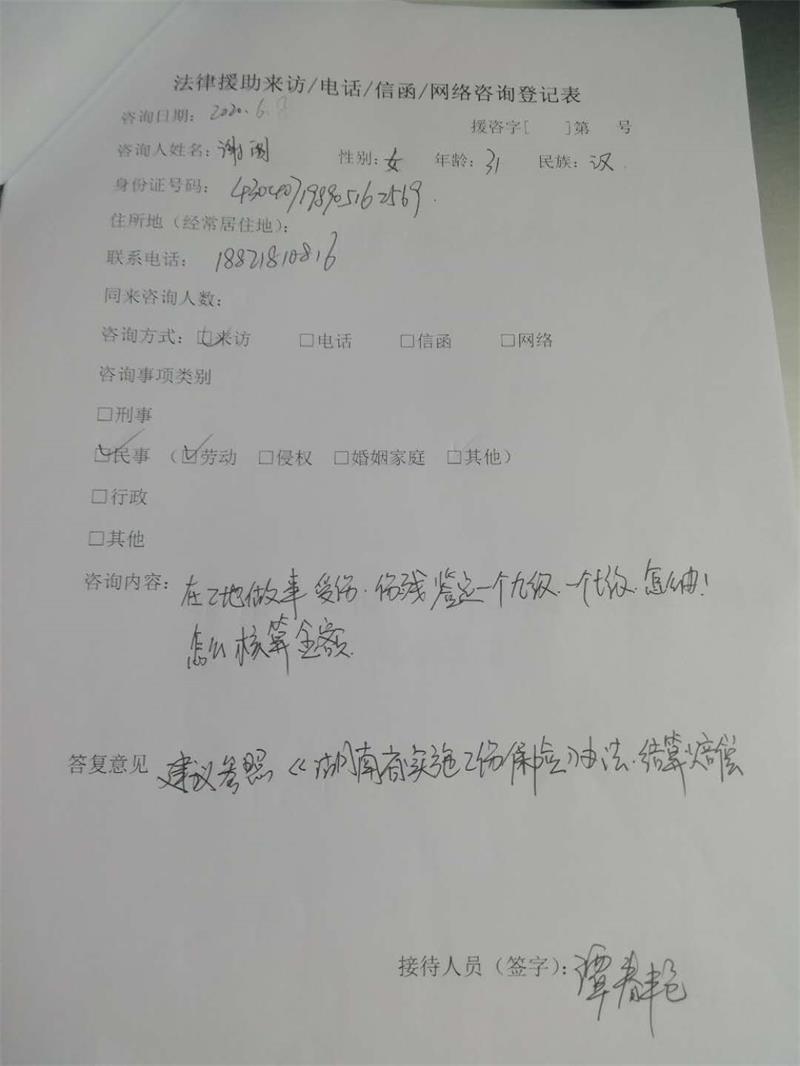 法律援助来访/电话/信函/网络咨询登记表
咨询日期: 2020.6.8
援咨字[ ]第 号
咨询人姓名: 谢 性别: 女 年龄: 31 民族: 汉
身份证号码: 430407198905162569
住所地(经常居住地):
联系电话: 18821810816
同来咨询人数:
咨询方式: □来访 □电话 □信函 □网络
咨询事项类别
□刑事
□民事 (□劳动 □侵权 □婚姻家庭 □其他)
□行政
□其他
咨询内容: 在工地做事受伤.伤残鉴定一个九级.一个七级.怎么!
怎么核算金额.
答复意见 建议参照《湖南省实施工伤保险》办法.结算赔偿
接待人员(签字): 谭春艳